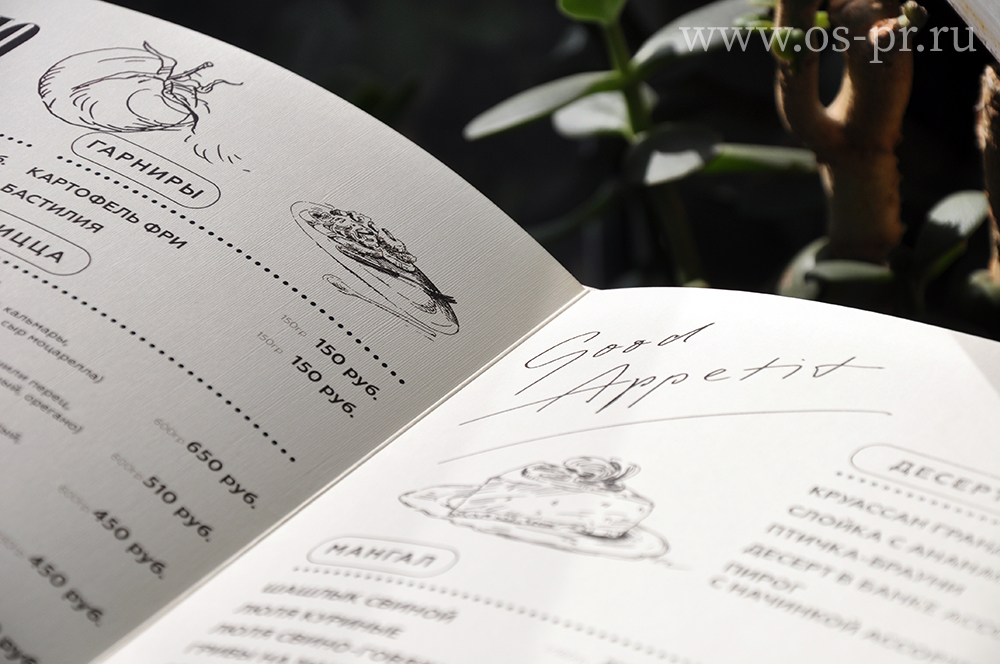 www.os-pr.ru
ГАРНИРЫ
КАРТОФЕЛЬ ФРИ
БАСТИЛИЯ
150гр. 150 руб.
150гр. 150 руб.
ИЦЦА
кальмары,
сыр моцарелла)
перец,
орегано)
600гр. 650 руб.
510 руб.
450 руб.
450 руб.
руб.
Good
Appetit
МАНГАЛ
ШАШЛЫК СВИНОЙ
ЛЮЛЯ КУРИНЫЕ
ЛЮЛЯ СВИНО-ГОВЯ
ГРИБЫ НА
ДЕСЕРТ
КРУАССАН ГРАН
СЛОЙКА С АНАНА
ПТИЧКА-БРАУНИ
ДЕСЕРТ В БАНКЕ АССО
ПИРОГ
С НАЧИНКОЙ АССОР